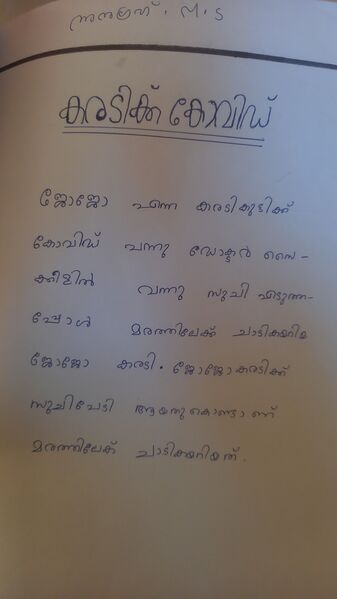 അനലഹ്. M. S
കരടിക്ക് കോവിഡ്
ജോജോ എന്ന കരടികുട്ടിക്ക്
കോവിഡ് വന്നു ഡോക്ടർ സൈ-
ക്കിളിൽ വന്നു സൂചി എടുത്ത-
പ്പോൾ മരത്തിലേക്ക് ചാടികയറിയ
ജോജോ കരടി. ജോജോകരടിക്ക്
സൂചിപേടി ആയതുകൊണ്ടാണ്
മരത്തിലേക് ചാടികയറിയത്.